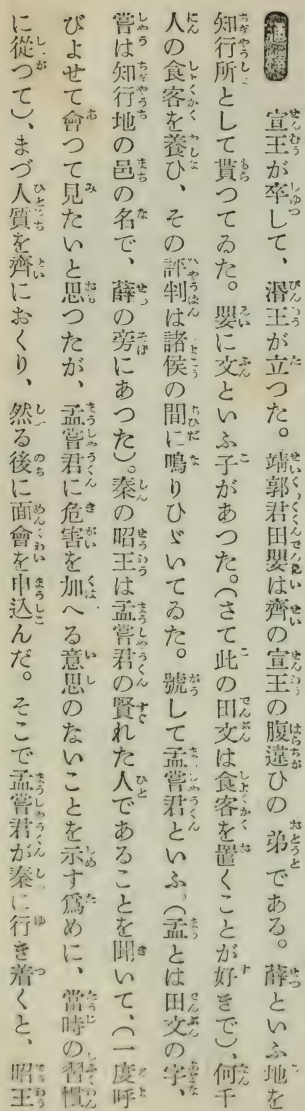 通釋 宣王が卒して、湣王が立つた。靖郭君田嬰は齊の宣王の腹違ひの弟である。薛といふ地を
知行所として貰つてゐた。嬰に文といふ子があつた。(さて此の田文は食客を置くことが好きで)、何千
人の食客を養ひ、その評判は諸侯の間に鳴りひゞいてゐた。號して孟嘗君といふ(孟とは田文の字、
嘗は知行地の邑の名で、薛の旁にあつた)。秦の昭王は孟嘗君の賢れた人であることを聞いて、(一度呼
びよせて會つて見たいと思つたが、孟嘗君に危害を加へる意思のないことを示す爲めに、當時の習慣
に從つて)、まづ人質を齊におくり、然る後に面會を申込んだ。そこで孟嘗君が秦に行き着くと、昭王